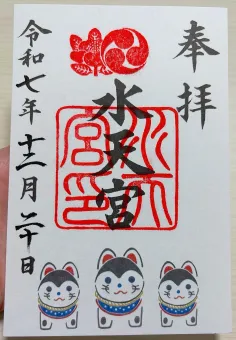 奉拝
水天宮
水天
宮印
令和七年十二月二十日